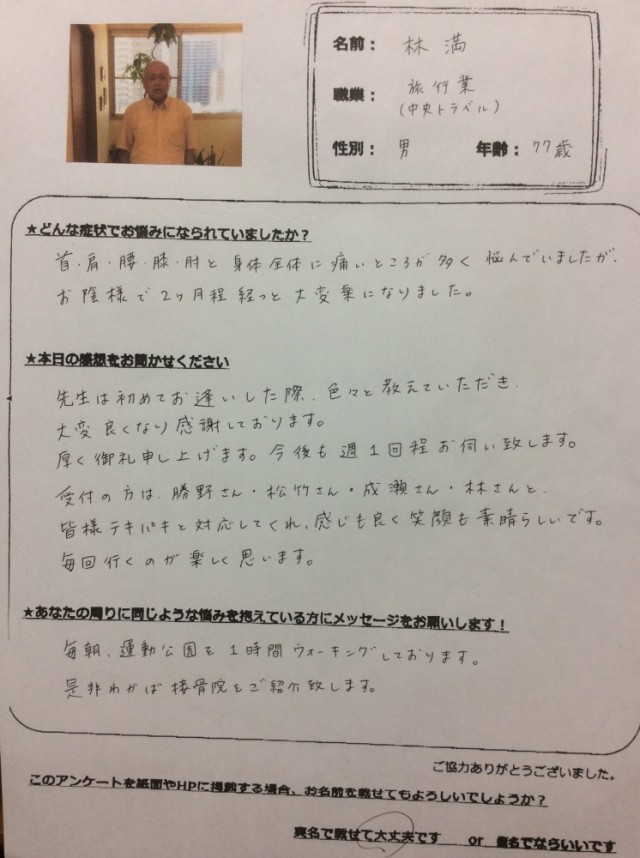 名前： 林 満
職業： 旅行業
（中央トラベル）
性別： 男 年齢： 77歳
★どんな症状でお悩みになられていましたか？
首・肩・腰・膝・肘と 身体全体に 痛いところが 多く 悩んでいましたが、
お陰様で 2ヶ月程 経つと 大変楽になりました。
★本日の感想をお聞かせください
先生は初めてお逢いした際、色々と教えていただき、
大変良くなり感謝しております。
厚く御礼申し上げます。今後も週1回程お伺い致します。
受付の方は、勝野さん・松竹さん・成瀬さん・林さんと、
皆様テキパキと対応してくれ、感じも良く笑顔も素晴らしいです。
毎回行くのが楽しく思います。
★あなたの周りに同じような悩みを抱えている方にメッセージをお願いします！
毎朝、運動公園を1時間ウォーキングしております。
是非わかば接骨院をご紹介致します。
ご協力ありがとうございました。
このアンケートを紙面やHPに掲載する場合、お名前を載せてもよろしいでしょうか？
実名で載せて大丈夫です or 仮名でならいいです